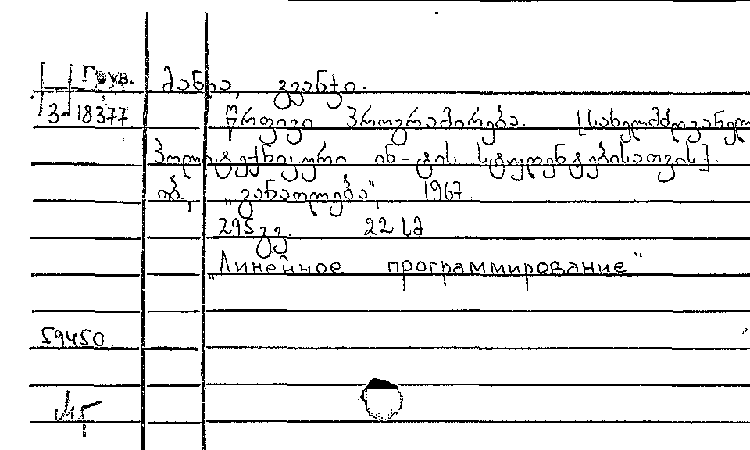 Груз.
მანია, ჯვანჭი.
3-18377 წრფივი პროგრამირება. [სახელმძღვანელო
პოლიტექნიკური ინ-ტის სტუდენტებისათვის].
თბ, „განათლება", 1967
295 გვ. 22 სმ
„Линейное программирование"
59450